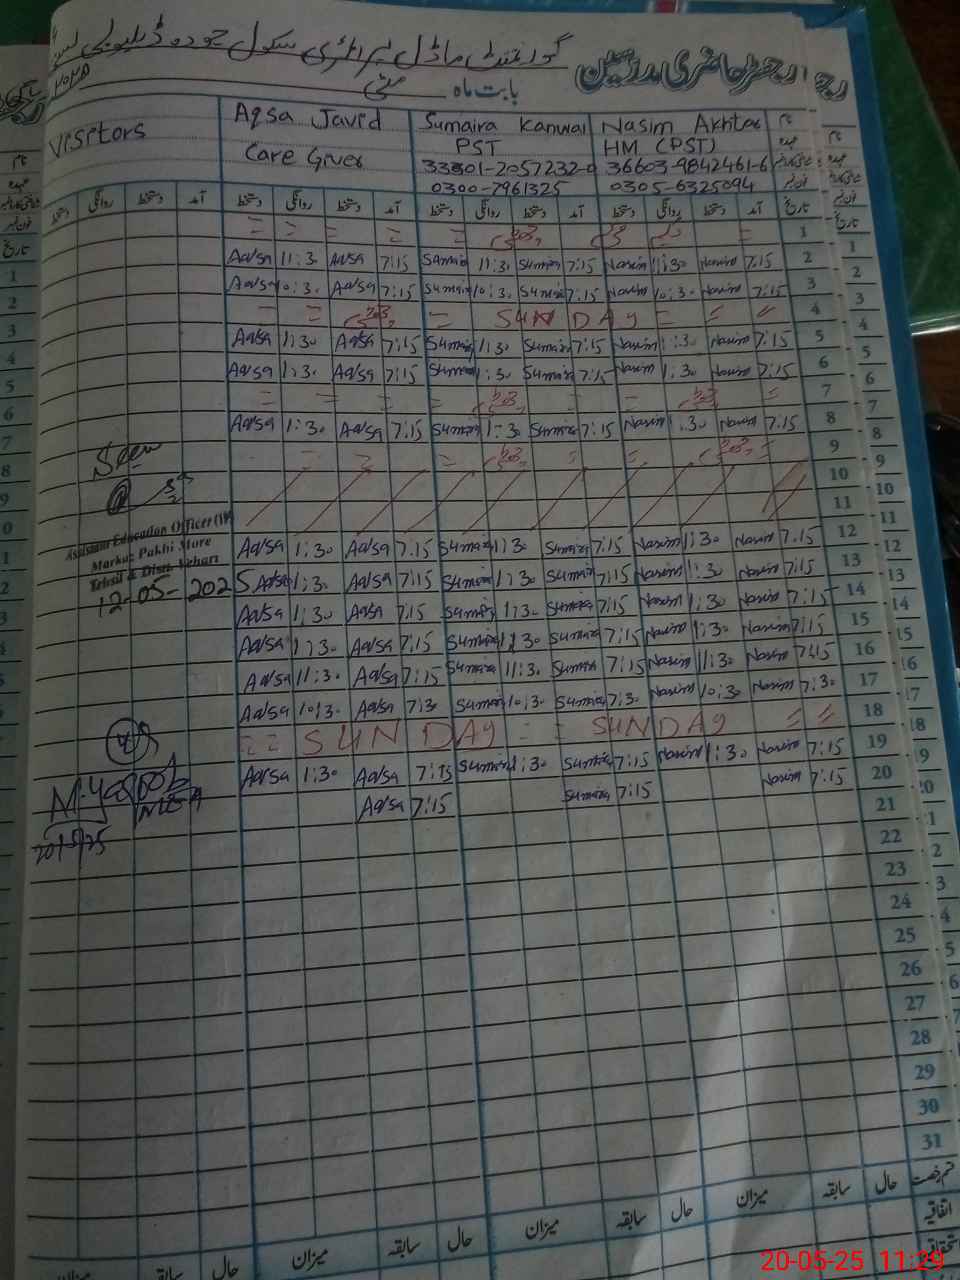 رجسٹر حاضری مدرسین
گورنمنٹ ماڈل پرائمری سکول
بابت ماہ مئی ۲۰۲۵
Visitors | Aqsa Javed | Sumaira Kanwal | Nasim Akhtar | نام
Care Giver | PST | HM (PST) | عہدہ
36603-9842461-6
0300-7961325 | 0305-6325094
دستخط | روانگی | دستخط | آمد | دستخط | روانگی | دستخط | آمد | دستخط | روانگی | دستخط | آمد | دستخط | روانگی | دستخط | آمد | تاریخ
= = = = = = 1
Aqsa 11:30 Aqsa 7:15 Sumaira 11:30 Sumaira 7:15 Nasim 11:30 Nasim 7:15 2
Aqsa 10:30 Aqsa 7:15 Sumaira 10:30 Sumaira 7:15 Nasim 10:30 Nasim 7:15 3
= = = SUNDAY = = = 4
Aqsa 1:30 Aqsa 7:15 Sumaira 1:30 Sumaira 7:15 Nasim 1:30 Nasim 7:15 5
Aqsa 1:30 Aqsa 7:15 Sumaira 1:30 Sumaira 7:15 Nasim 1:30 Nasim 7:15 6
= = = = = = = = 7
Aqsa 1:30 Aqsa 7:15 Sumaira 1:30 Sumaira 7:15 Nasim 1:30 Nasim 7:15 8
= = = = = = 9
Seen
10
11
Assistant Education Officer
Markaz Pakhi More
Tehsil & Distt. Vehari
12-05-2025
Aqsa 1:30 Aqsa 7:15 Sumaira 1:30 Sumaira 7:15 Nasim 1:30 Nasim 7:15 12
Aqsa 1:30 Aqsa 7:15 Sumaira 1:30 Sumaira 7:15 Nasim 1:30 Nasim 7:15 13
Aqsa 1:30 Aqsa 7:15 Sumaira 1:30 Sumaira 7:15 Nasim 1:30 Nasim 7:15 14
Aqsa 1:30 Aqsa 7:15 Sumaira 1:30 Sumaira 7:15 Nasim 1:30 Nasim 7:15 15
Aqsa 11:30 Aqsa 7:15 Sumaira 11:30 Sumaira 7:15 Nasim 11:30 Nasim 7:15 16
Aqsa 10:30 Aqsa 7:30 Sumaira 10:30 Sumaira 7:30 Nasim 10:30 Nasim 7:30 17
= = SUNDAY = = SUNDAY = = 18
Aqsa 1:30 Aqsa 7:15 Sumaira 1:30 Sumaira 7:15 Nasim 1:30 Nasim 7:15 19
Aqsa 7:15 Sumaira 7:15 Nasim 7:15 20
MEA
21
22
23
24
25
26
27
28
29
30
31
حال سابقہ میزان حال سابقہ میزان حال سابقہ میزان حال سابقہ میزان قسم رخصت
اتفاقیہ
20-05-25 11:29